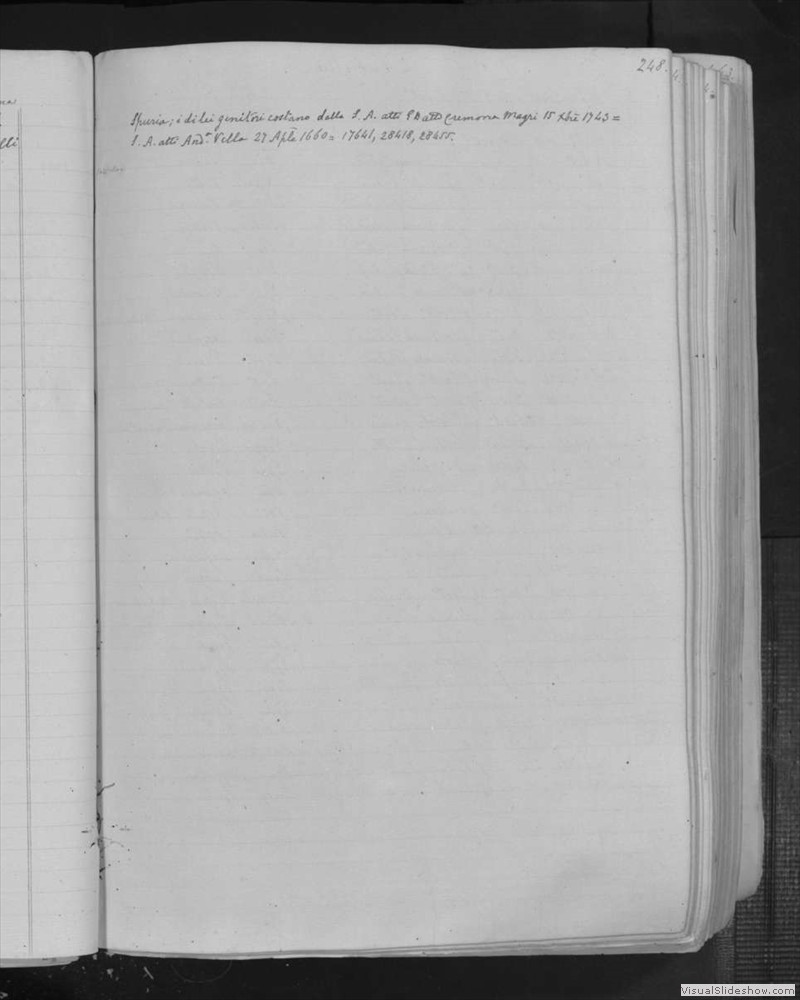 248.
Spuria; i di lei genitori costano dalla S. A. atti Cremona Magri 15 Xbre 1743 =
S. A. atti And.a Villa 27 Aple 1660 = 17641, 28418, 28455.
VisualSlideshow.com